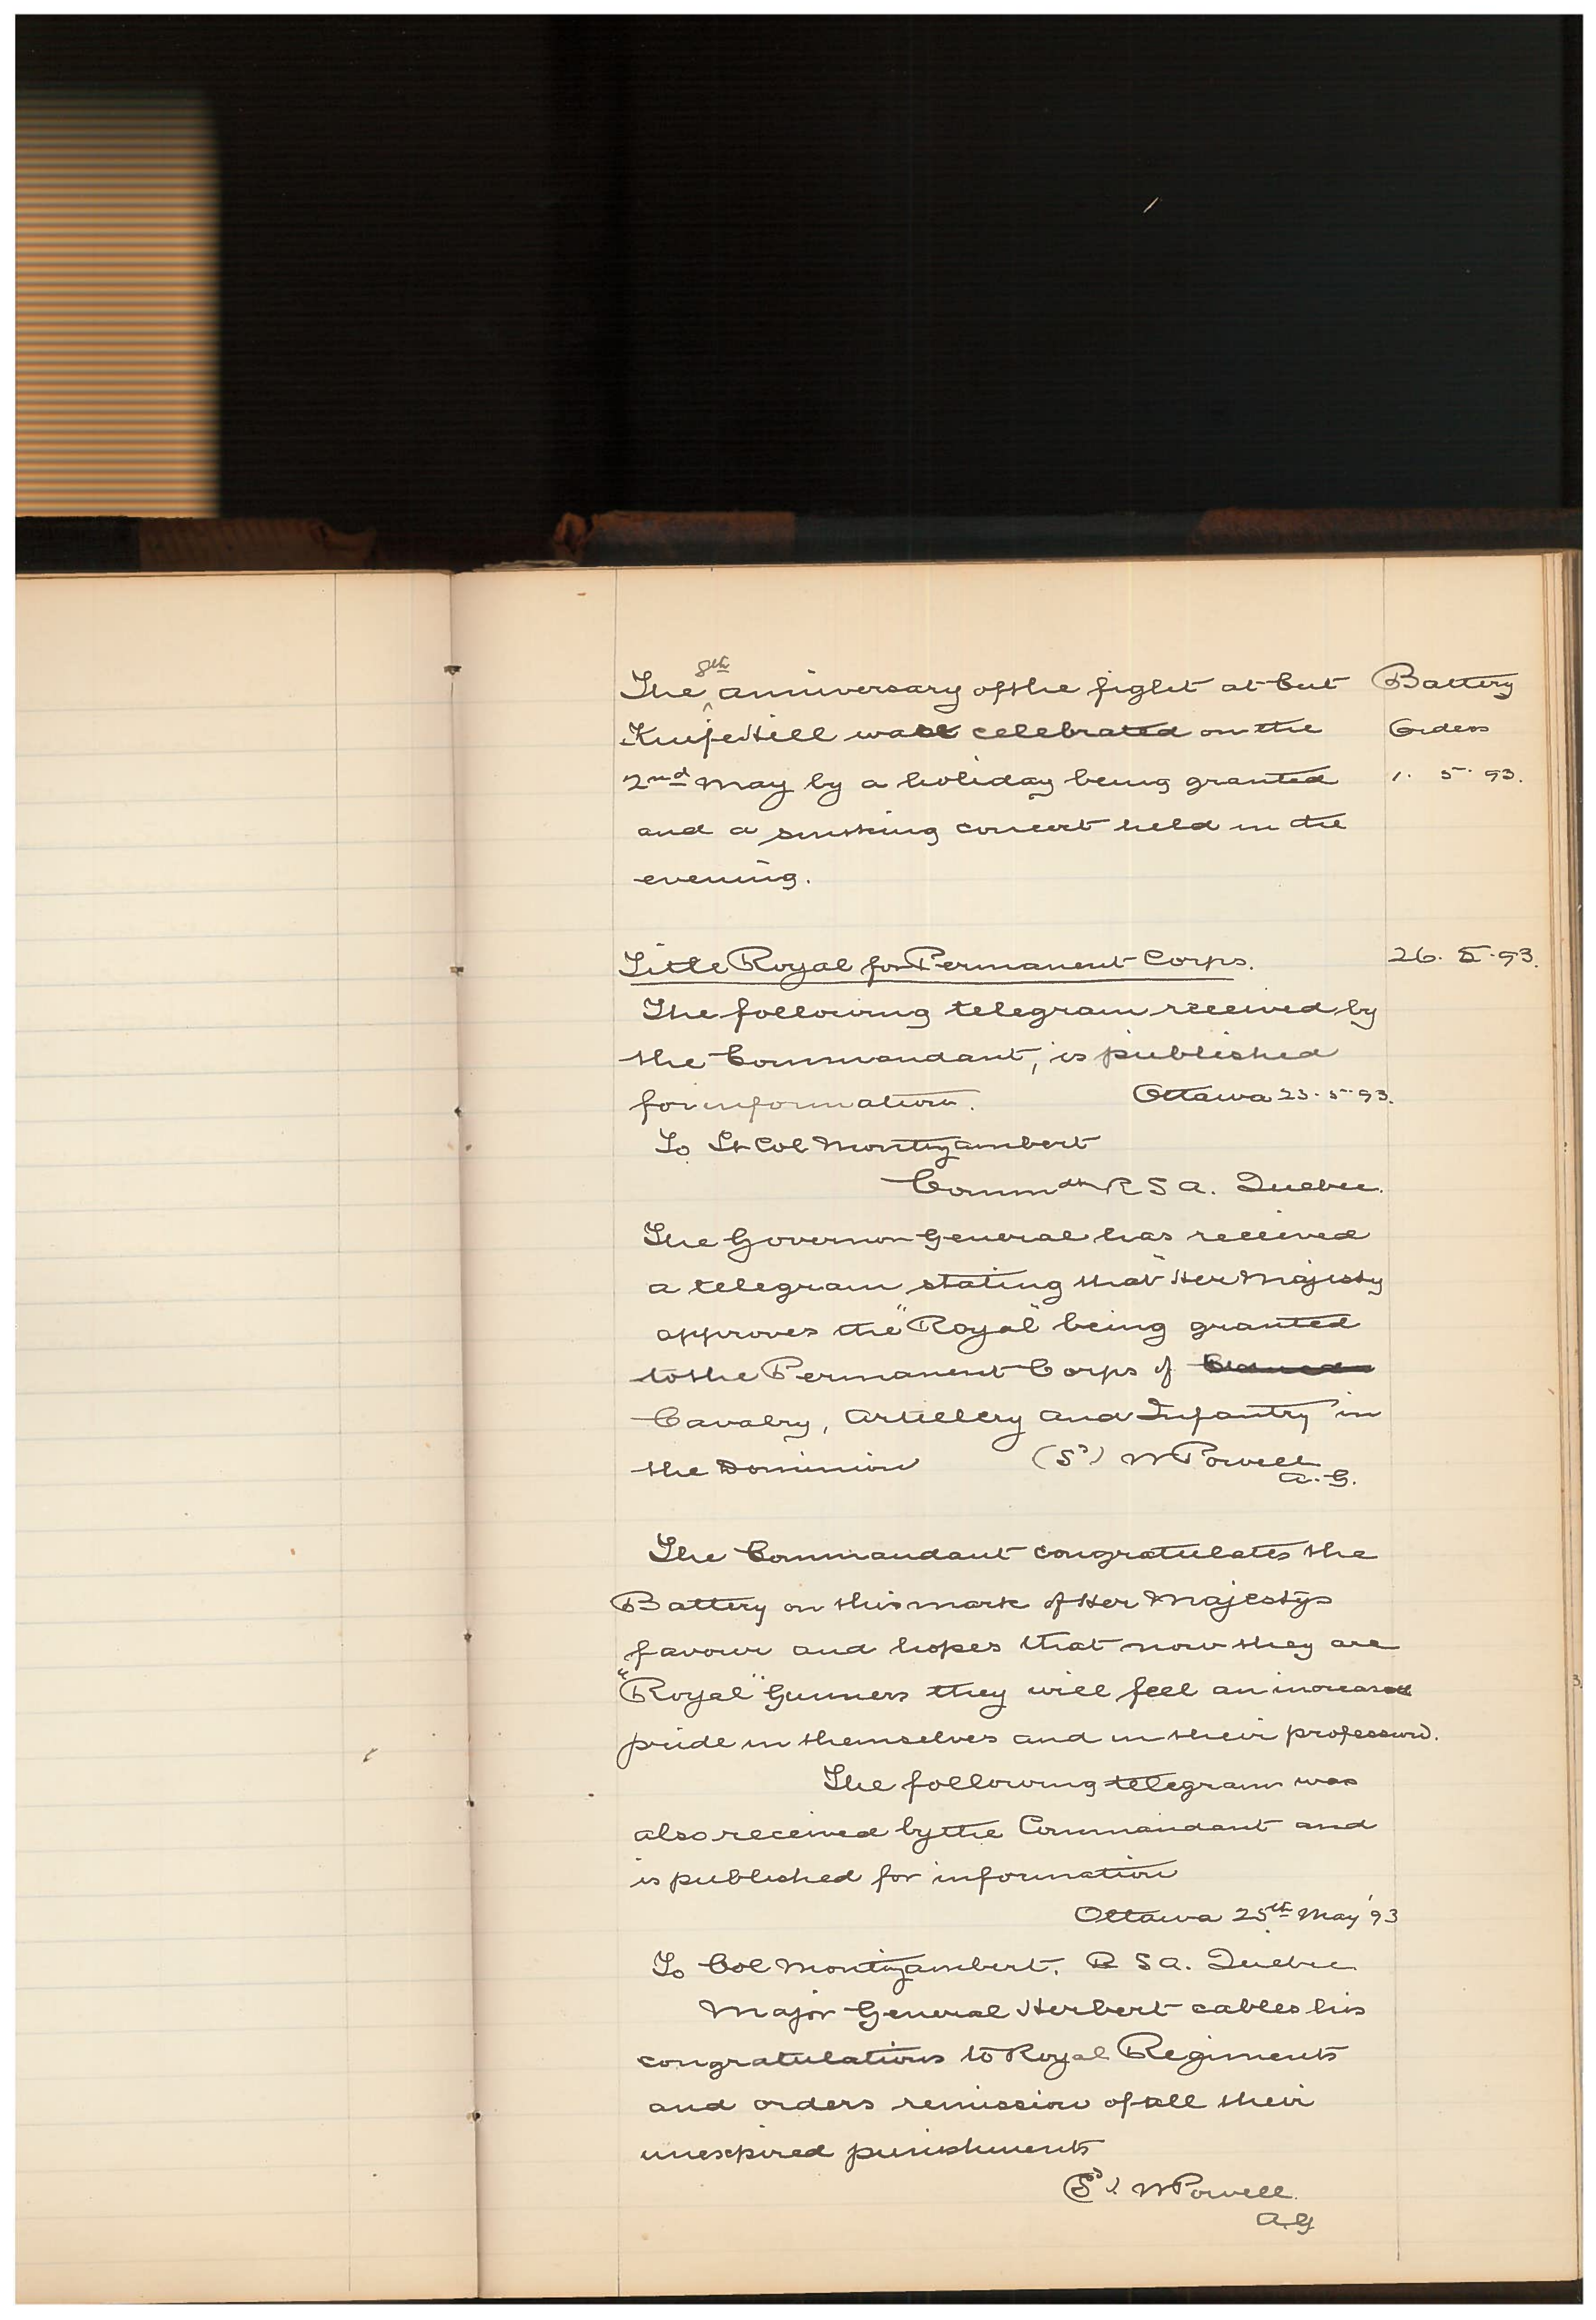 The 8th anniversary of the fight at Cut Battery
Knife Hill was celebrated on the Orders
2nd May by a holiday being granted 1. 5. 93.
and a smoking concert held in the
evening.
Title Royal for Permanent Corps. 26. 5. 93.
The following telegram received by
the Commandant, is published
for information. Ottawa 23. 5. 93.
To Lt Col Montizambert
Commdt R S A. Quebec.
The Governor General has received
a telegram stating that "Her Majesty
approves the "Royal" being granted
to the Permanent Corps of
Cavalry, Artillery and Infantry" in
the Dominion (Sd) W Powell
A. G.
The Commandant congratulates the
Battery on this mark of Her Majestys
favour and hopes that now they are
"Royal" Gunners they will feel an increased
pride in themselves and in their profession.
The following telegram was
also received by the Commandant and
is published for information
Ottawa 25th May '93
To Col Montizambert. R S A. Quebec
Major General Herbert cables his
congratulations to Royal Regiments
and orders remission of all their
unexpired punishments
(Sd) W Powell.
A.G